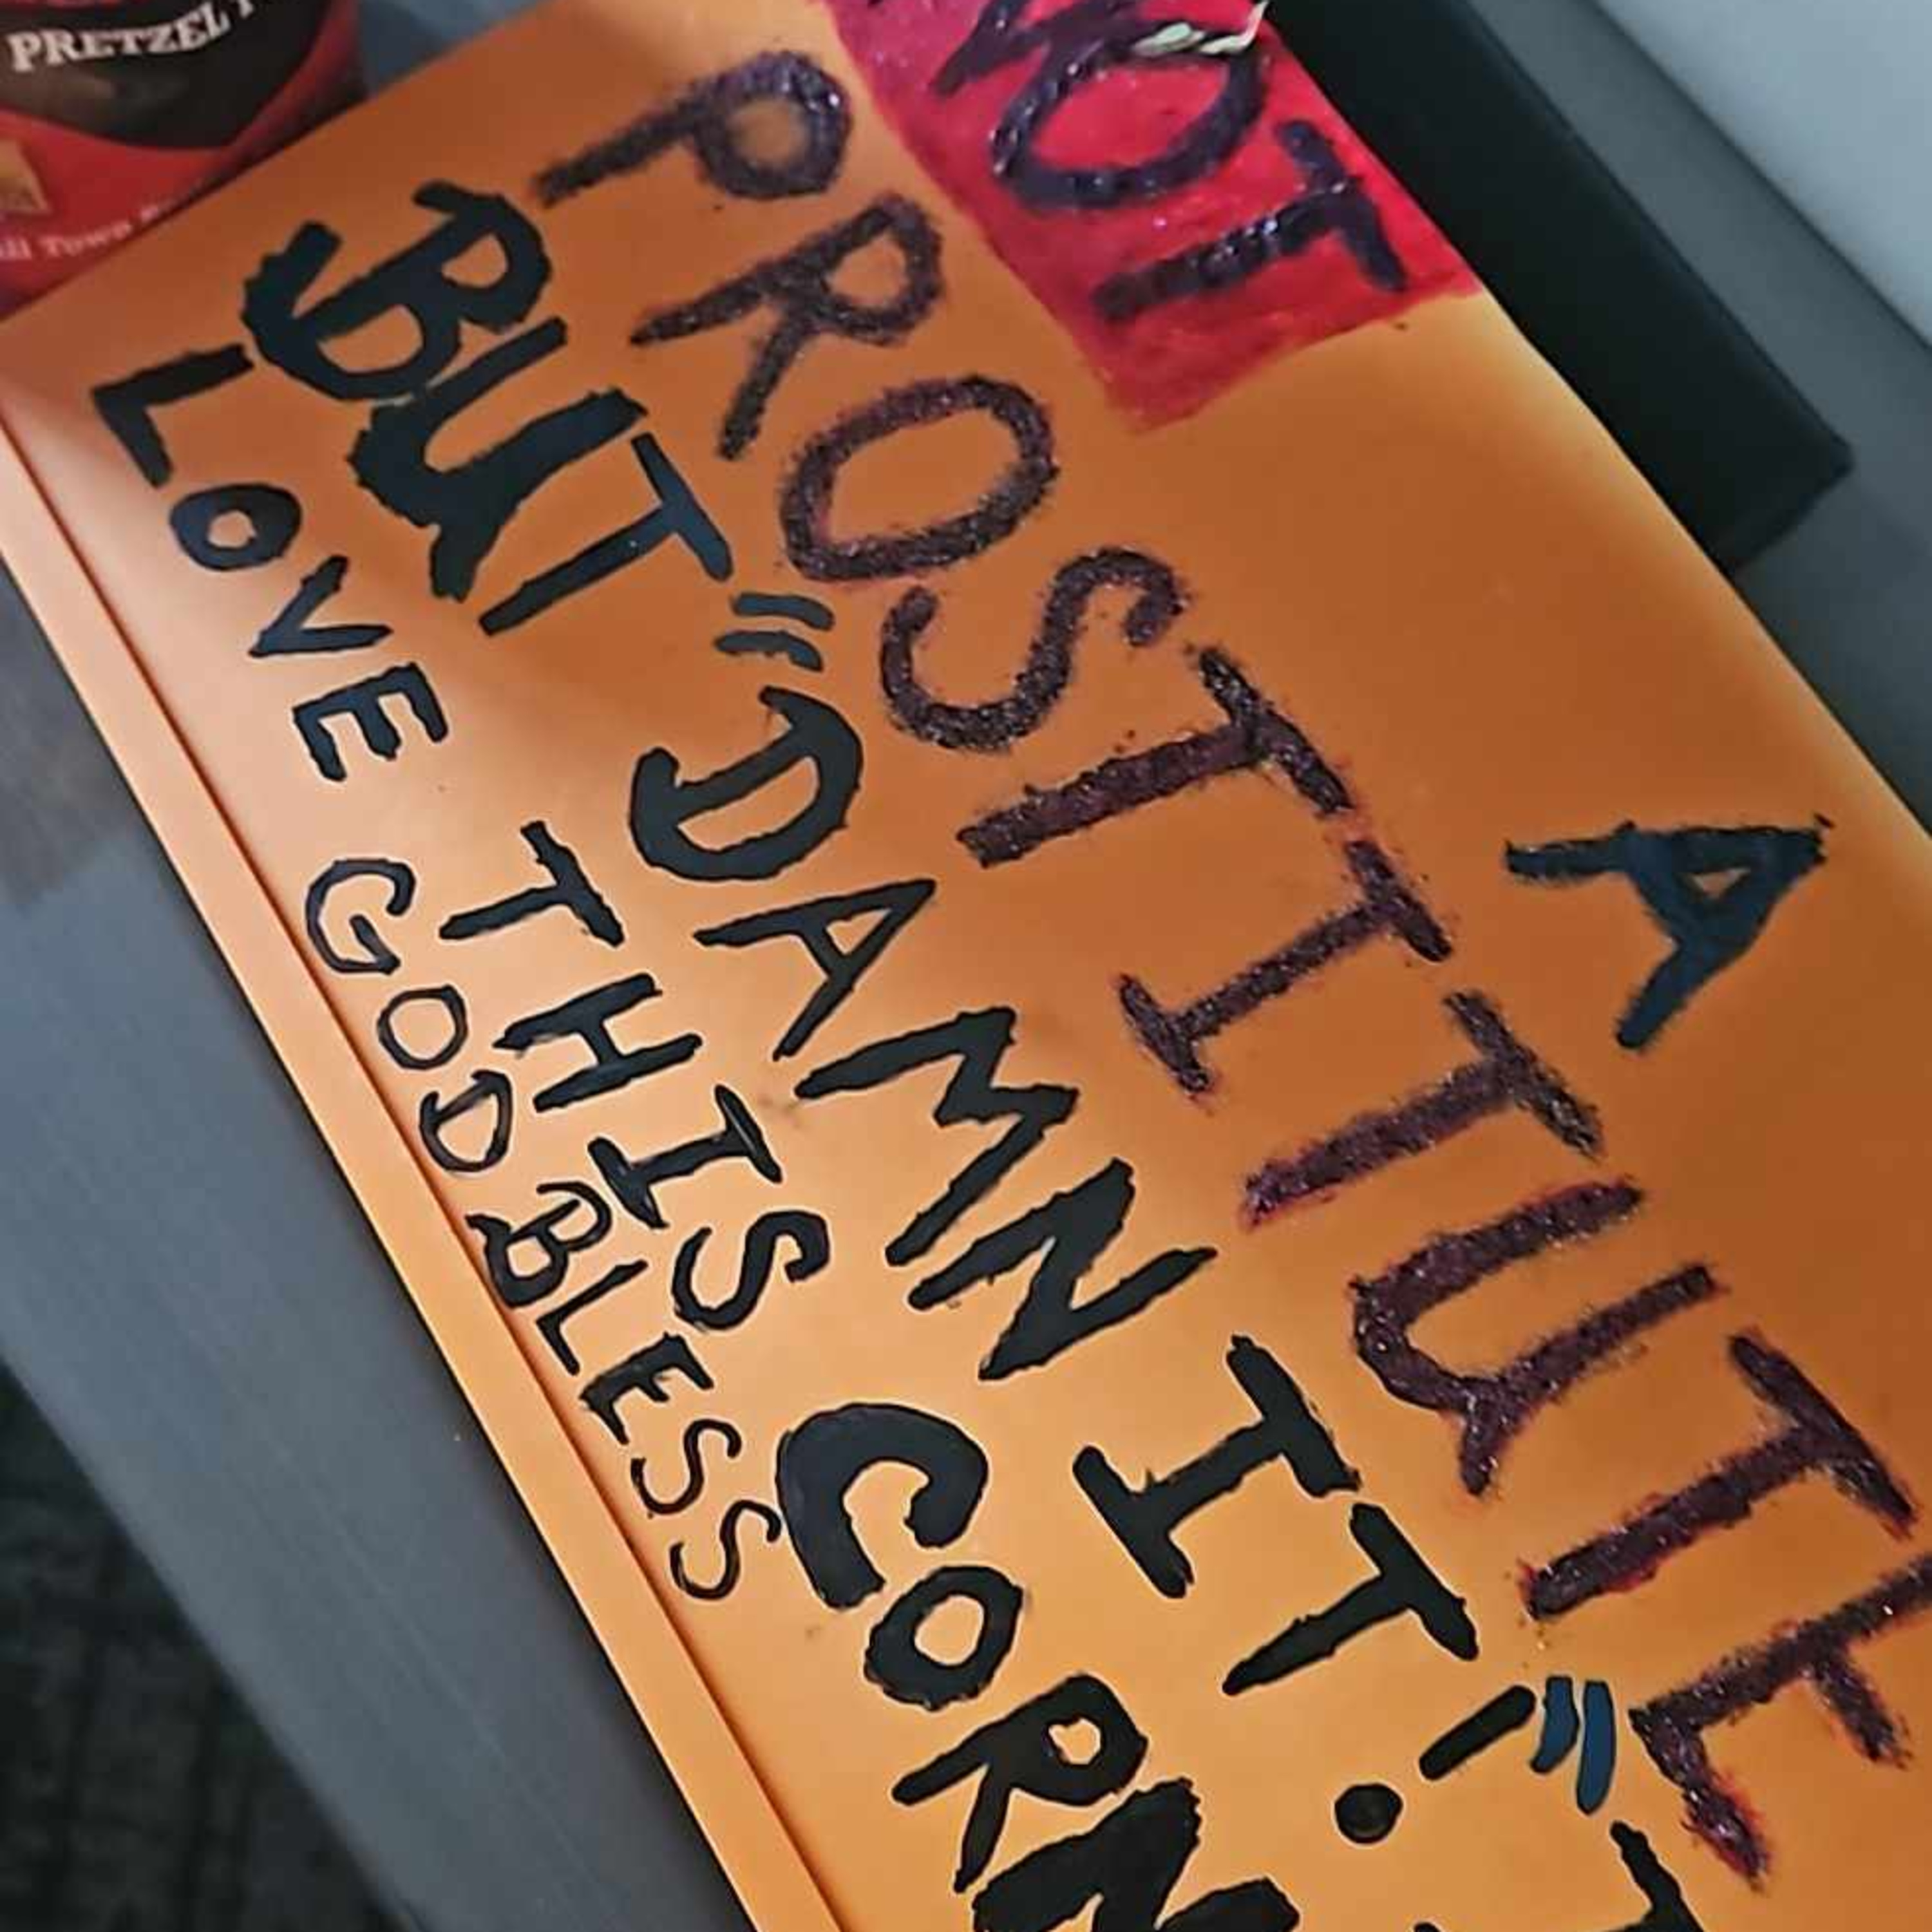 PRETZEL
NOT
A
PROSTITUTE
BUT "DAMN IT!"
LOVE THIS CORN
GOD BLESS